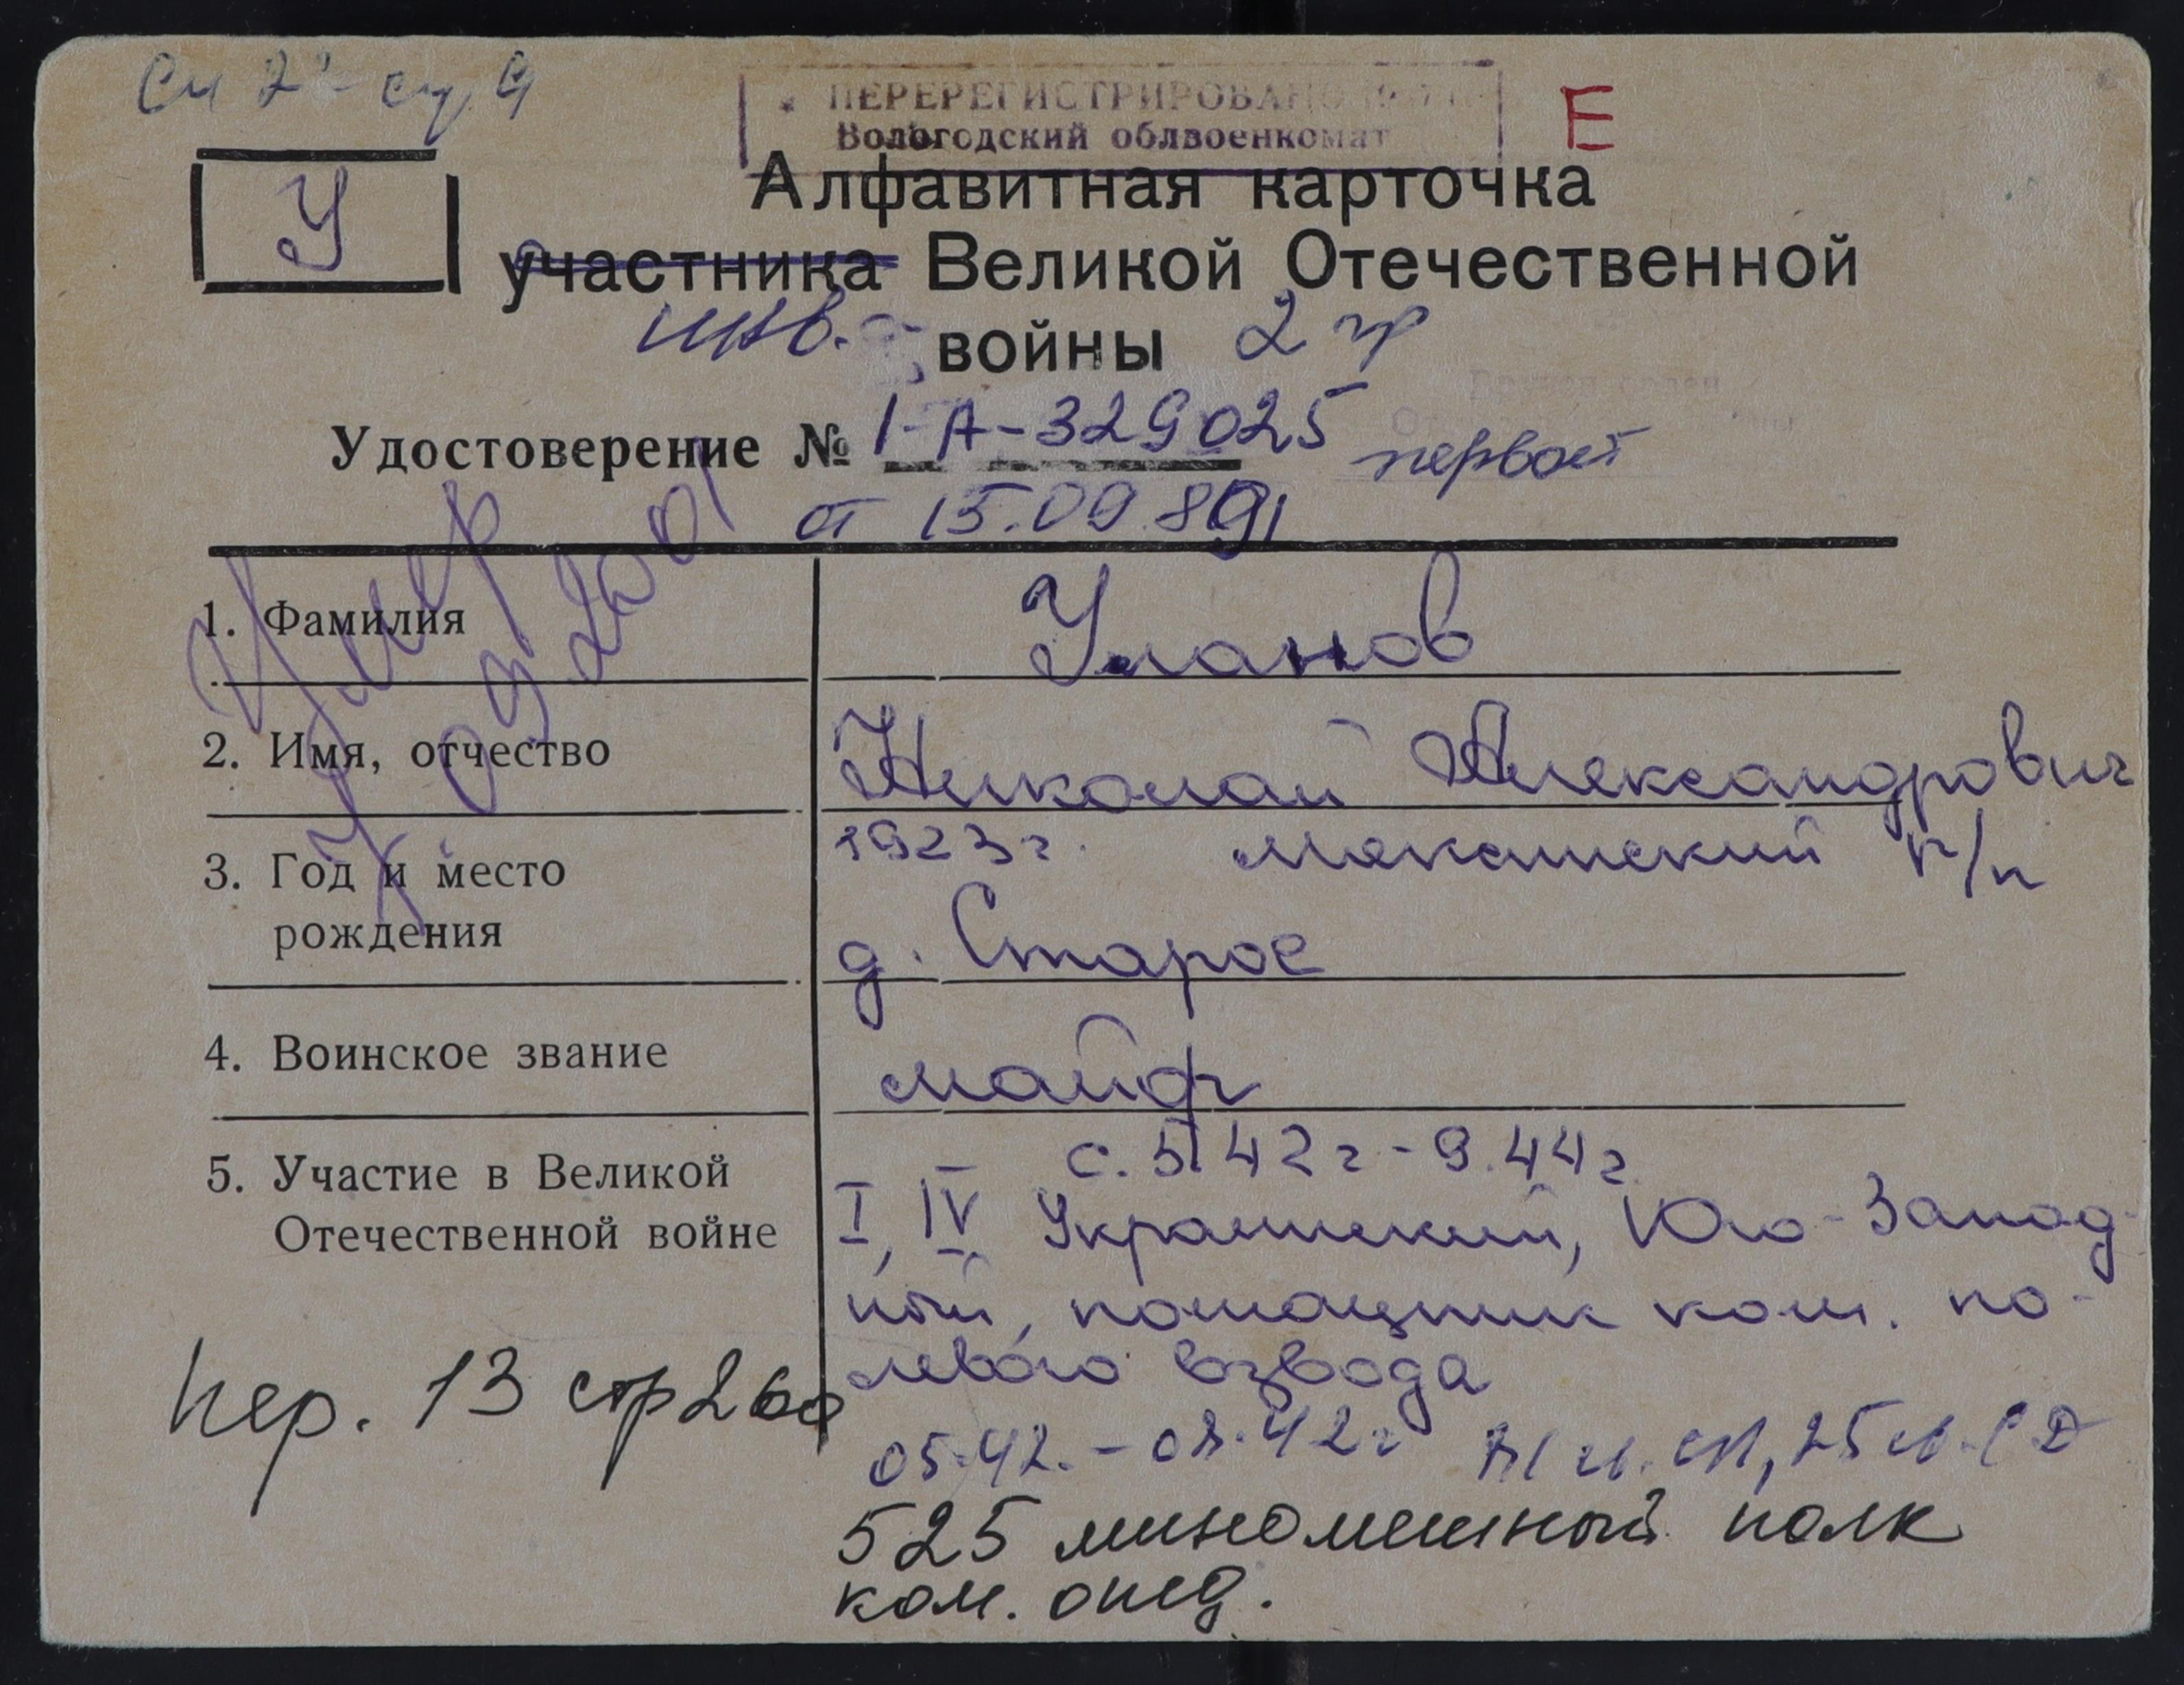 ПЕРЕРЕГИСТРИРОВАНО
Е
Вологодский облвоенкомат
У
Алфавитная карточка
участника Великой Отечественной
инв. войны 2 гр
Удостоверение № I-А-329025
первой
от 15.09.89
Умер
09.2001
1. Фамилия
Уланов
2. Имя, отчество
Николай Александрович
3. Год и место
рождения
1923г. Мяксинский р/н
д. Старое
4. Воинское звание
майор
5. Участие в Великой
Отечественной войне
с. 5.42г - 9.44г.
I, IV Украинский, Юго-Запад-
ный, помощник ком. по-
левого взвода
Пер. 13 стр
05.42. - 08.42г 25
525 минометный полк
ком. отд.